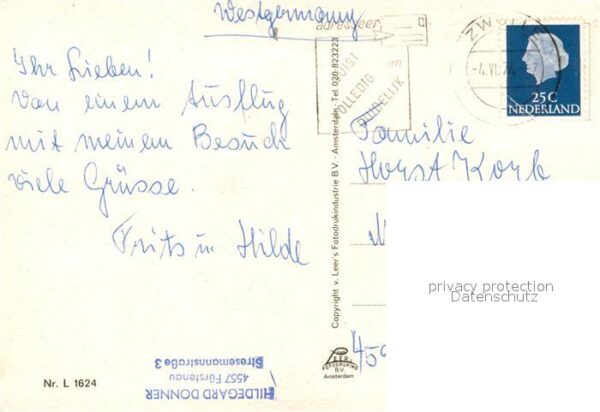 Westgermany
adresseer
JUIST
VOLLEDIG
en
DUIDELIJK
ZWOLLE
-4.VI.74
25C
NEDERLAND
Ihr Lieben!
Von einem Ausflug
mit meinem Besuch
viele Grüsse.
Frits u Hilde
Familie
Horst Kork
459
privacy protection
Datenschutz
Copyright v. Leer's Fotodrukindustrie B.V. - Amsterdam Tel. 020-823223
VAN LEER'S
FOTODRUKIND
B.V.
Amsterdam
HILDEGARD DONNER
4557 Fürstenau
Stresemannstraße 3
Nr. L 1624